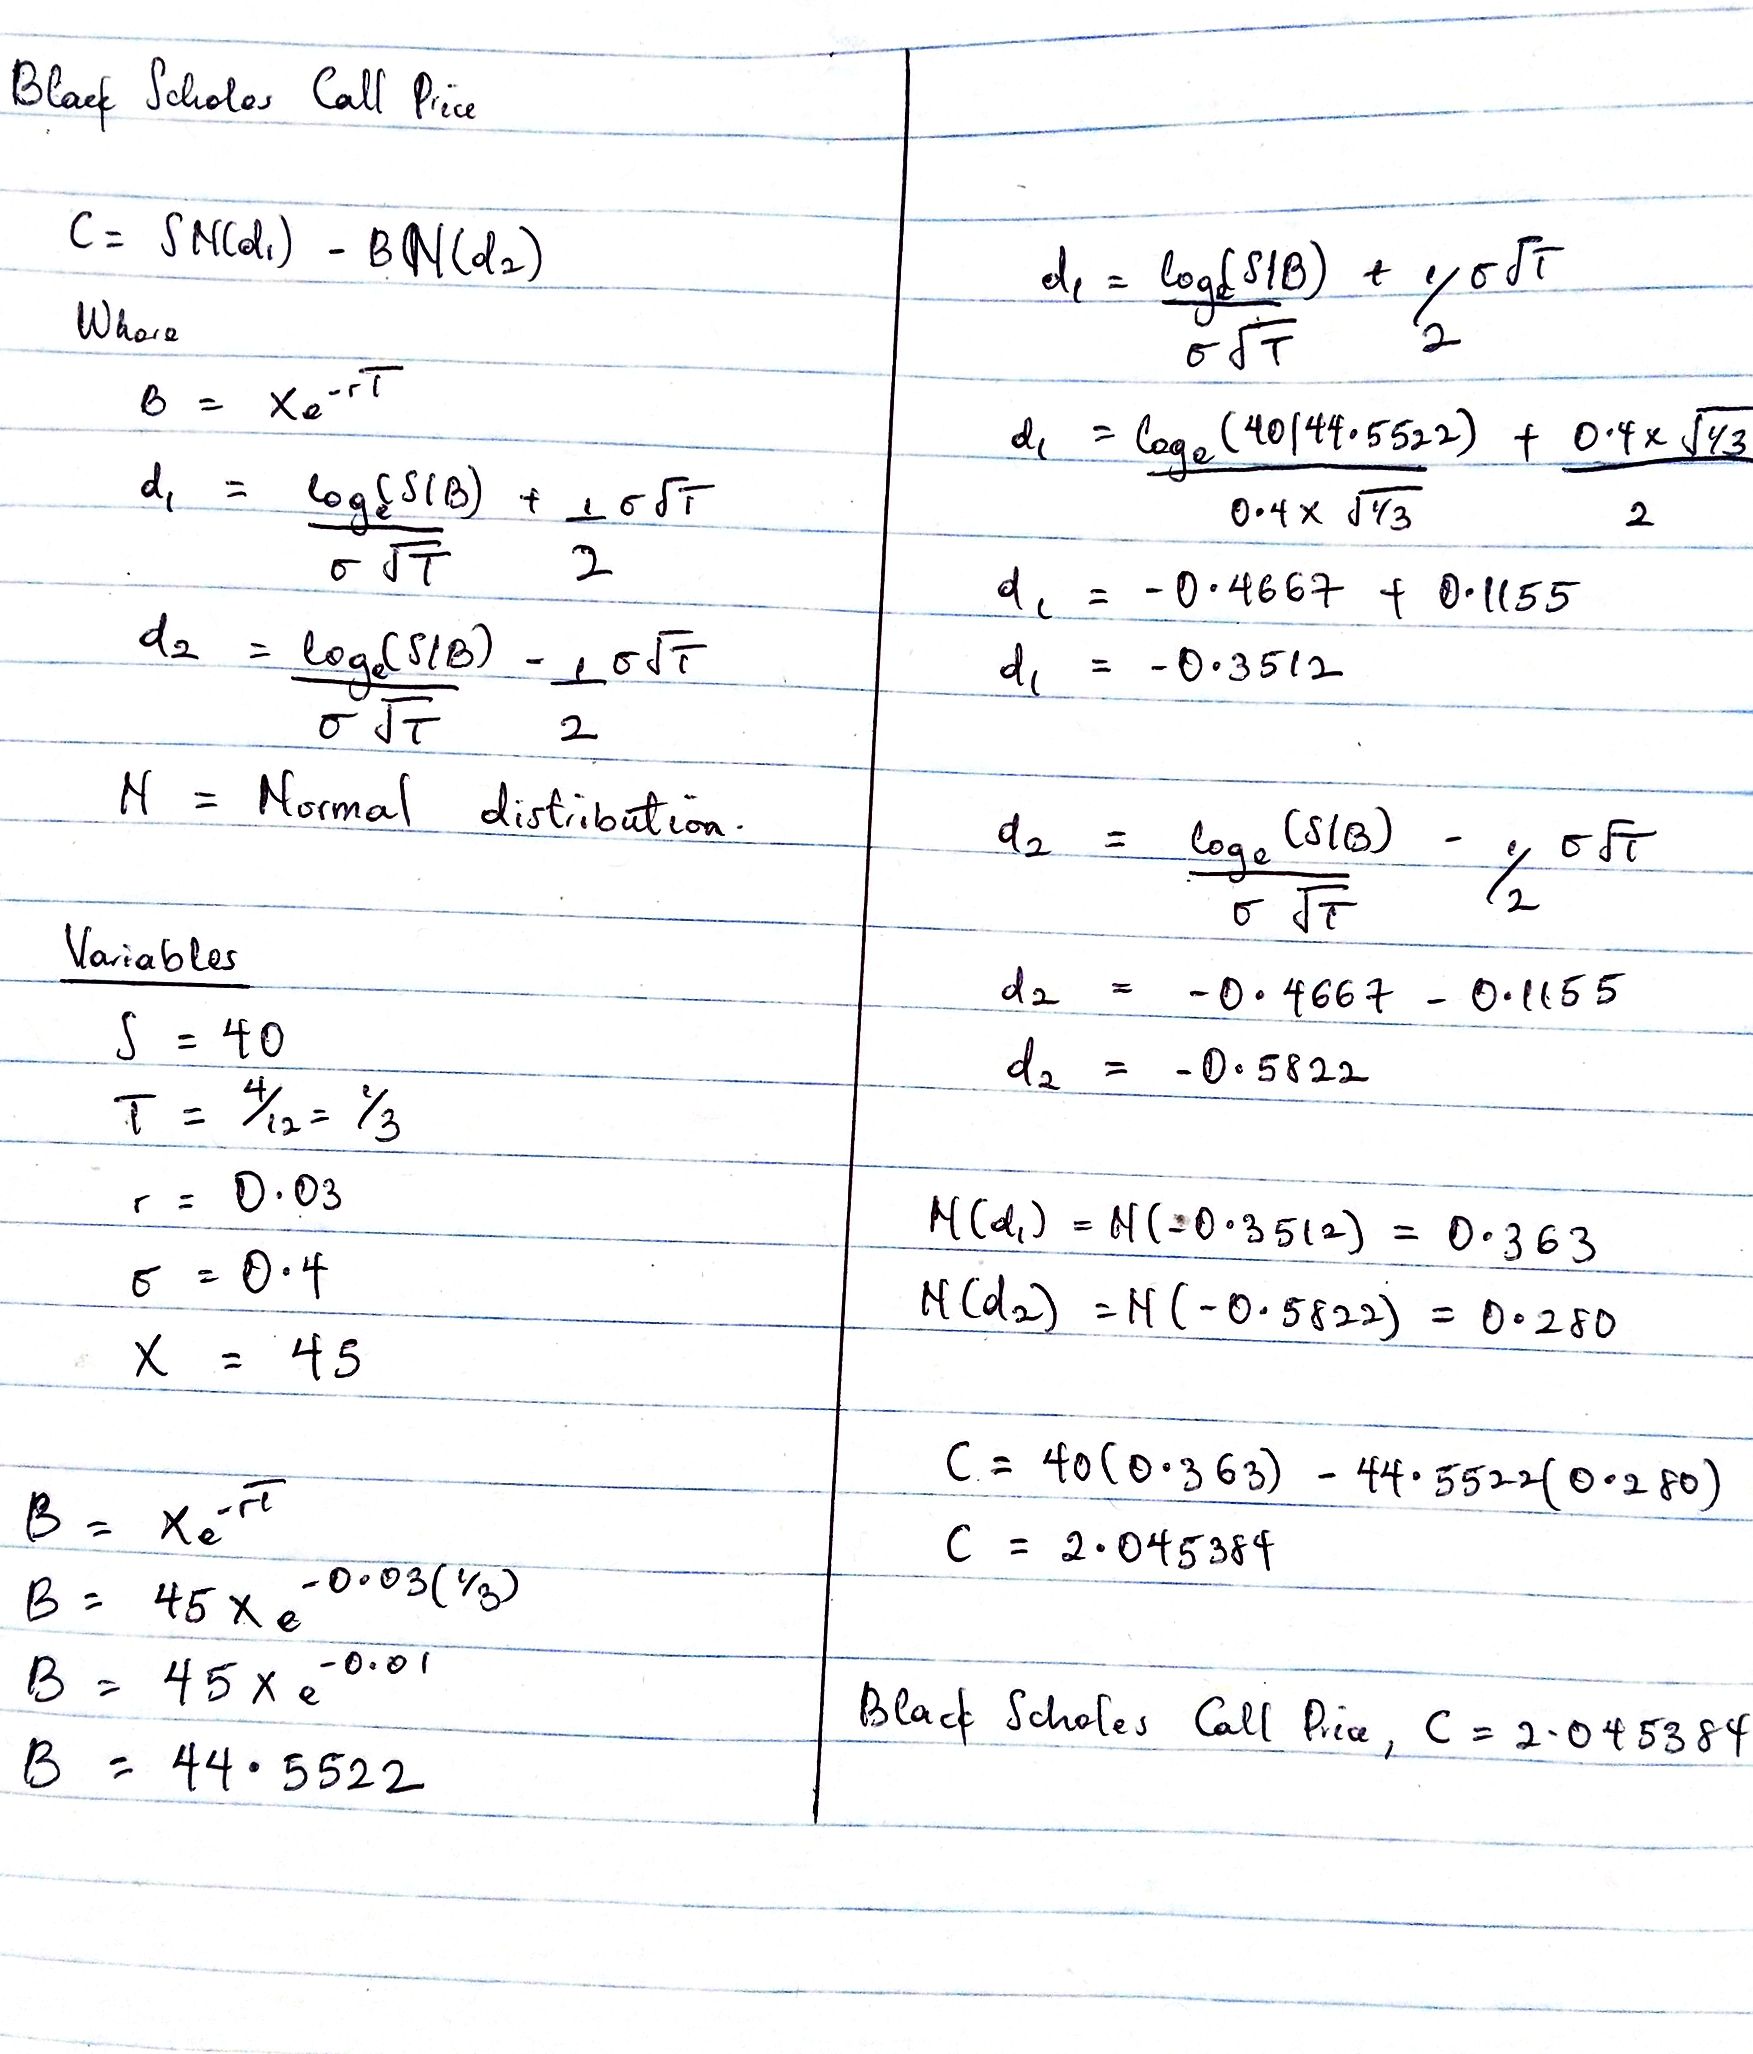 Black Scholes Call Price
C = SN(d₁) - BN(d₂)
Where
B = Xe^-rT
d₁ = logₑ(S/B) / σ√T + 1/2 σ√T
d₂ = logₑ(S/B) / σ√T - 1/2 σ√T
N = Normal distribution.
Variables
S = 40
T = 4/12 = 1/3
r = 0.03
σ = 0.4
X = 45
B = Xe^-rT
B = 45 x e^-0.03(1/3)
B = 45 x e^-0.01
B = 44.5522
d₁ = logₑ(S/B) / σ√T + 1/2 σ√T
d₁ = logₑ(40/44.5522) / 0.4 x √1/3 + 0.4 x √1/3 / 2
d₁ = -0.4667 + 0.1155
d₁ = -0.3512
d₂ = logₑ(S/B) / σ√T - 1/2 σ√T
d₂ = -0.4667 - 0.1155
d₂ = -0.5822
N(d₁) = N(-0.3512) = 0.363
N(d₂) = N(-0.5822) = 0.280
C = 40(0.363) - 44.5522(0.280)
C = 2.045384
Black Scholes Call Price, C = 2.045384